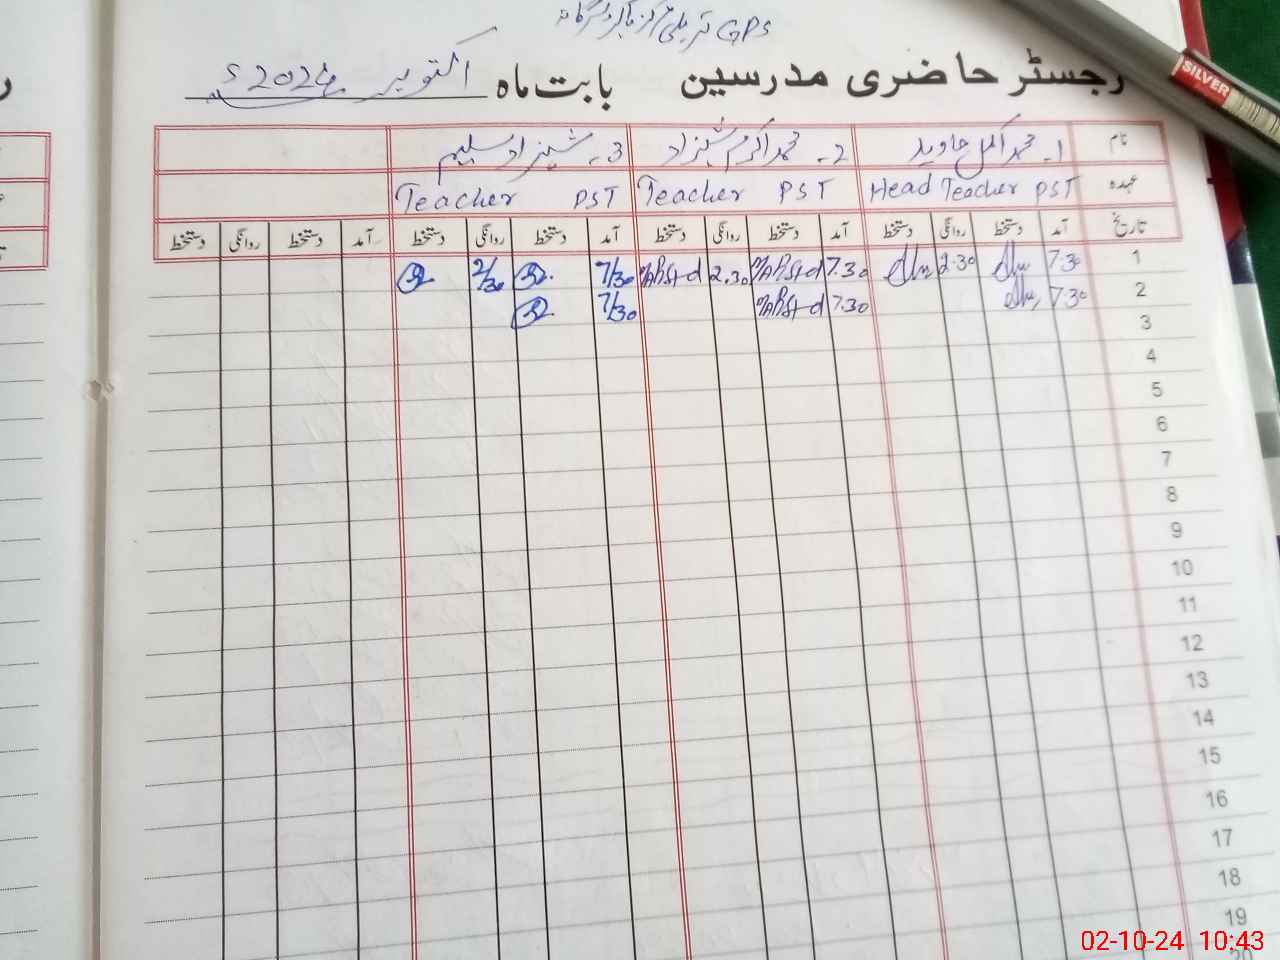 GPS
رجسٹر حاضری مدرسین بابت ماہ اکتوبر 2024ء
نام 1۔ محمد اکمل جاوید 2۔ محمد اکرم شہزاد 3۔ شہزاد سلیم
عہدہ Head Teacher PST Teacher PST Teacher PST
تاریخ آمد دستخط روانگی دستخط آمد دستخط روانگی دستخط آمد دستخط روانگی دستخط آمد دستخط روانگی دستخط
1 7.30 2.30 7.30 2.30 7/30 2/30
2 7.30 7.30 7/30
3
4
5
6
7
8
9
10
11
12
13
14
15
16
17
18
19
20
SILVER
02-10-24 10:43